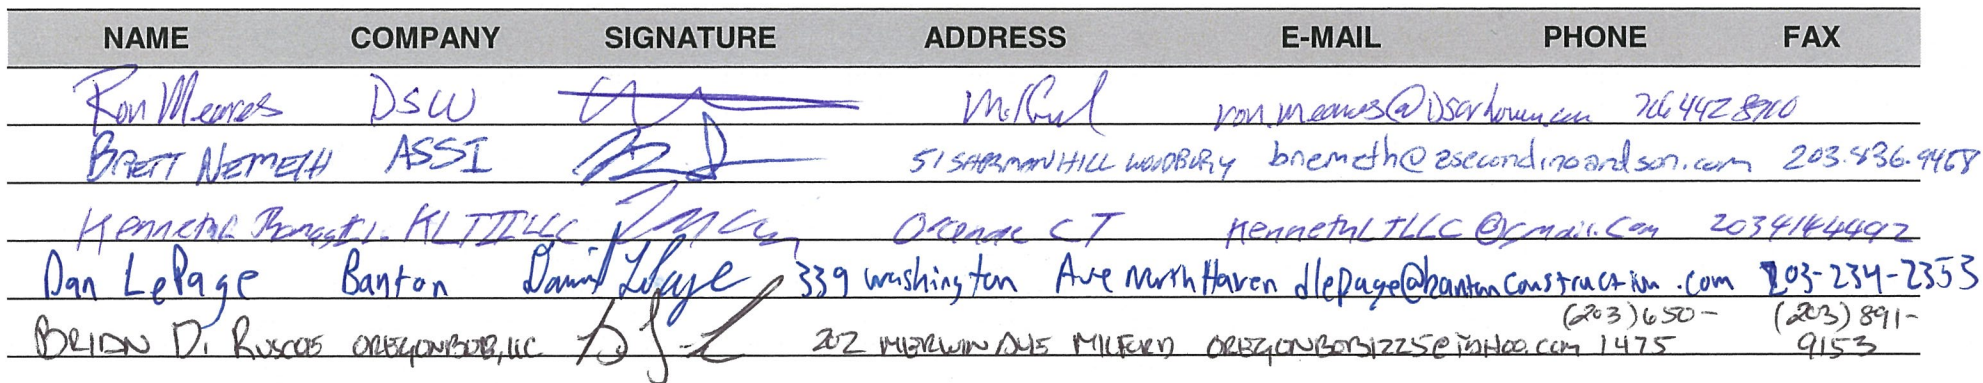 NAME COMPANY SIGNATURE ADDRESS E-MAIL PHONE FAX
Ron Meares DSW Milford
BRETT NEMETH ASSI 51 SHERMAN HILL WOODBURY bnemeth@asecondinoandson.com 203.836.9458
Kenneth KLTIII LLC Orange CT KennethLTLLC@gmail.com 2034144492
Dan LePage Banton Daniel LePage 339 Washington Ave North Haven dlepage@bantonconstruction.com 203-234-2353
BRIAN D. RUSCOE OREGONBOB, LLC 202 MERWIN AVE MILFORD OREGONBOB1225@YAHOO.com (203)650-1475 (203)891-9153